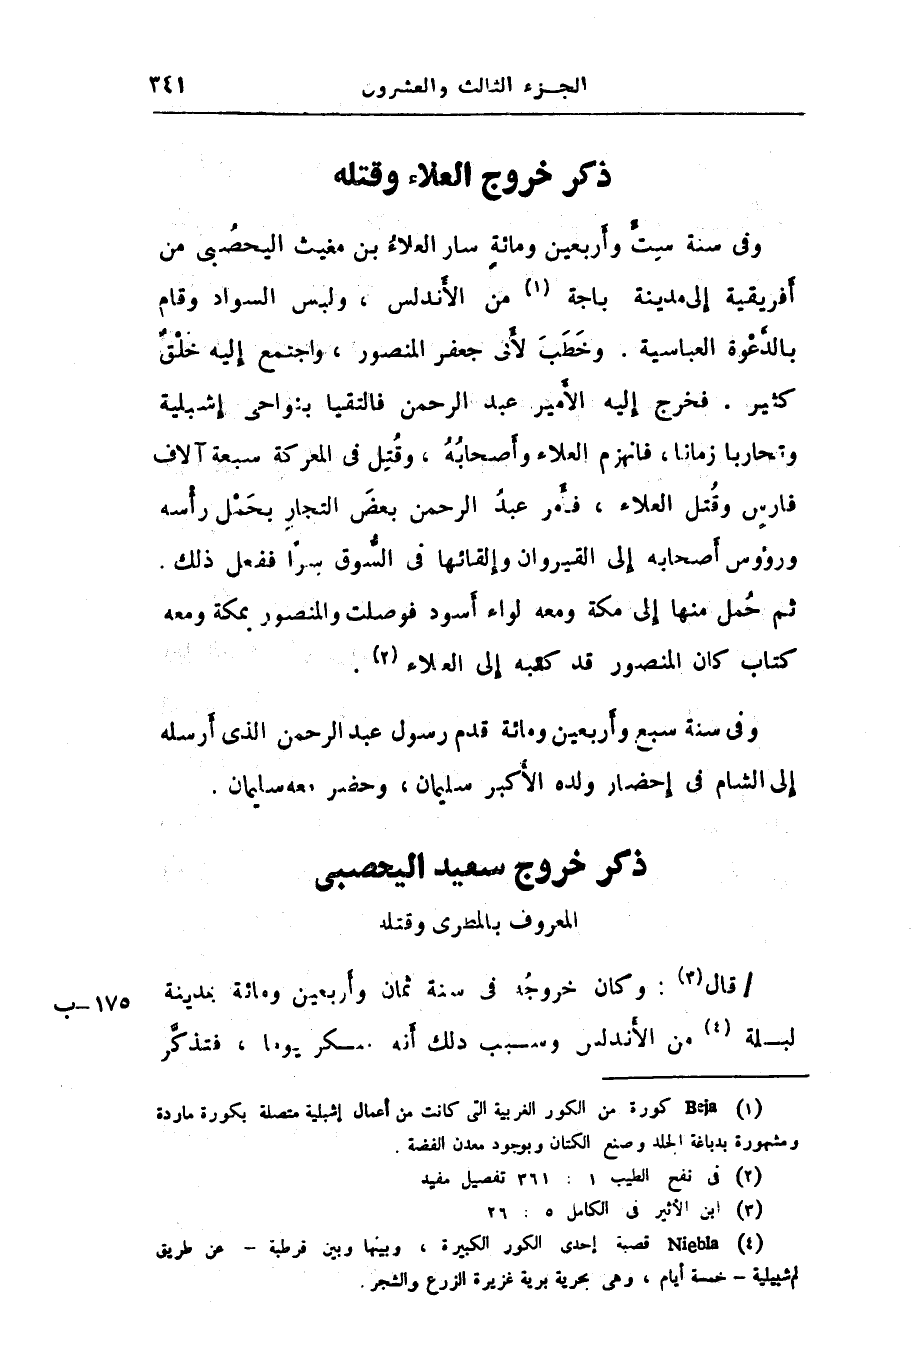 الجزء الثالث والعشرون ٣٤١
ذكر خروج العلاء وقتله
وفى سنة سِتٍّ وأَربعين ومائةٍ سار العلاءُ بن مغيث اليحصُبى من
أَفريقية إلى مدينة باجة (١) من الأَندلس ، ولبس السواد وقام
بالدَّعْوة العباسية . وخَطَبَ لأَبى جعفر المنصور ، واجتمع إليه خَلْقٌ
كثير . فخرج إليه الأَمير عبد الرحمن فالتقيا بنواحى إشبلية
وتحاربا زمانا ، فانهزم العلاء وأَصحابُهُ ، وقُتِل فى المعركة سبعة آلاف
فارسٍ وقُتل العلاء ، فأَمر عبدُ الرحمن بعضَ التجارِ بحَمْل رأْسه
ورؤوس أَصحابه إلى القيروان وإلقائها فى السُّوق سِرًّا ففعل ذلك .
ثم حُمل منها إلى مكة ومعه لواء أَسود فوصلت والمنصور بمكة ومعه
كتاب كان المنصور قد كتبه إلى العلاء (٢) .
وفى سنة سبع وأَربعين ومائة قدم رسول عبد الرحمن الذى أَرسله
إلى الشام فى إحضار ولده الأَكبر سليمان ، وحضر معه سليمان .
ذكر خروج سعيد اليحصبى
المعروف بالمطرى وقتله
/ قال (٣) : وكان خروجُه فى سنة ثمان وأَربعين ومائة بمدينة ١٧٥ – ب
لبـلة (٤) من الأَندلس وسبب ذلك أَنه سكر يوما ، فتذكَّر
(١) Beja كورة من الكور الغربية التى كانت من أعمال إشبلية متصلة بكورة ماردة
ومشهورة بدباغة الجلد وصنع الكتان وبوجود معدن الفضة .
(٢) فى نفح الطيب ١ : ٣٦١ تفصيل مفيد
(٣) ابن الأثير فى الكامل ٥ : ٢٦
(٤) Niebla قصبة إحدى الكور الكبيرة ، وبينها وبين قرطبة – عن طريق
إشبيلية – خمسة أيام ، وهى بحرية برية غزيرة الزرع والشجر .